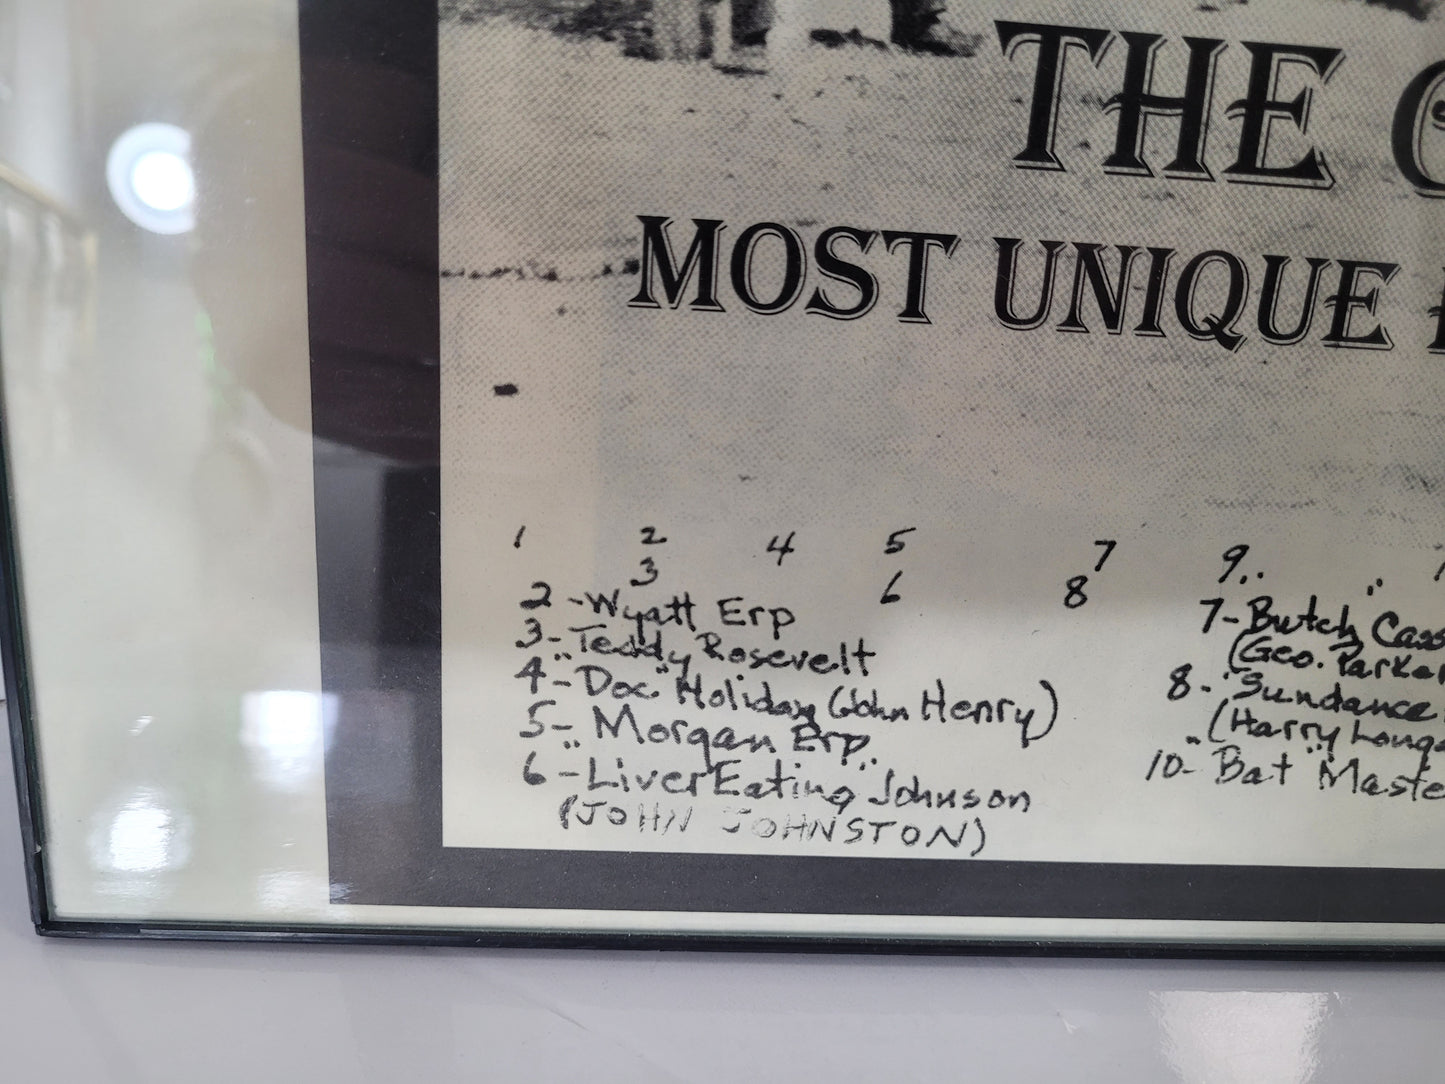 THE
MOST UNIQUE
1 2 4 5 7 9..
3 6 8
2 - Wyatt Erp
3 - Teddy Rosevelt
4 - "Doc" Holiday (John Henry)
5 - Morgan Erp
6 - "Liver Eating" Johnson
(JOHN JOHNSTON)
7 - Butch
(Geo. Parker
8 - "Sundance
(Harry
10 - "Bat"